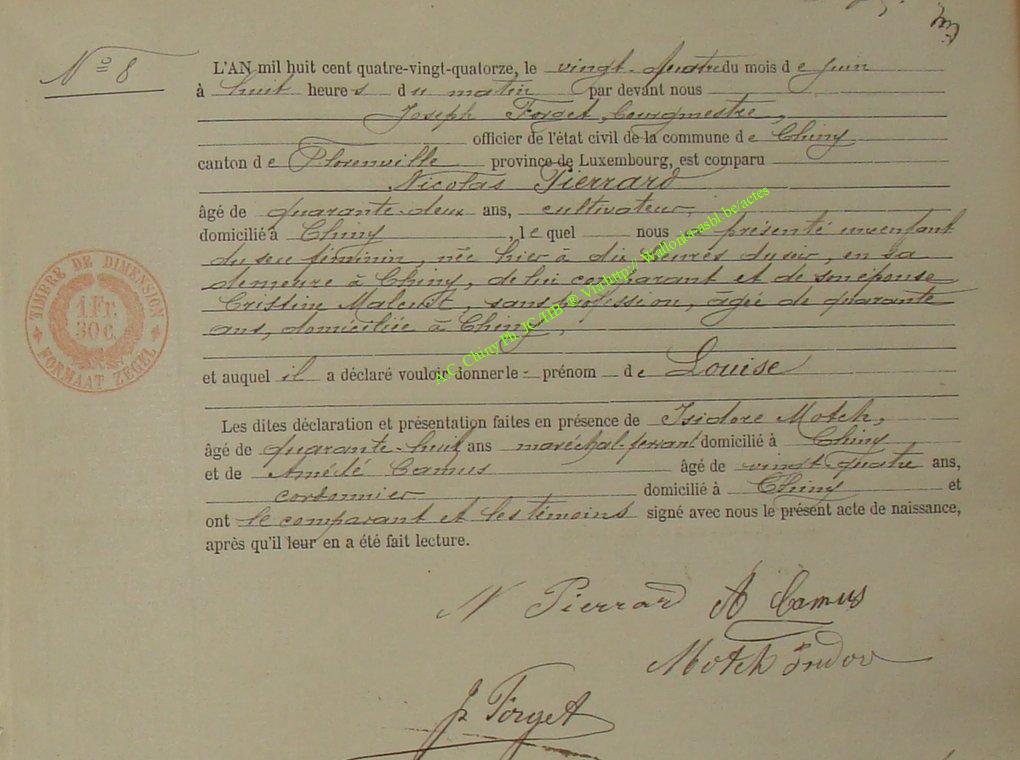 Nº 8
L'AN mil huit cent quatre-vingt-quatorze, le vingt-quatre du mois de juin
à huit heures du matin par devant nous
Joseph Forget, bourgmestre,
officier de l'état civil de la commune de Chiny
canton de Florenville province de Luxembourg, est comparu
Nicolas Pierrard
âgé de quarante-deux ans, cultivateur,
domicilié à Chiny, lequel nous a présenté un enfant
du sexe féminin, née hier à dix heures du soir, en sa
demeure à Chiny, de lui comparant et de son épouse
Cristine, sans profession, âgée de quarante
ans, domiciliée à Chiny,
et auquel il a déclaré vouloir donner le prénom de Louise
Les dites déclaration et présentation faites en présence de Isidore Motch,
âgé de quarante-huit ans maréchal-ferrant domicilié à Chiny
et de Amédé Camus âgé de vingt-quatre ans,
cordonnier domicilié à Chiny et
ont le comparant et les témoins signé avec nous le présent acte de naissance,
après qu'il leur en a été fait lecture.
N Pierrard A Camus
Motch
J Forget
TIMBRE DE DIMENSION
1 Fr.
30 c.
FORMAAT ZEGEL
A.C. Chiny Ph. JC/HB ® Via http://Wallonia-asbl.be/actes